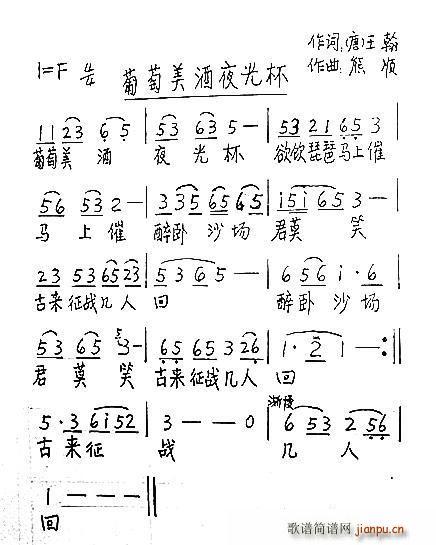 作词:(唐)王翰
1=F 4/4 葡萄美酒夜光杯 作曲:熊顺
11 23 6 5 | 53 63 5 — | 53 21 65 3
葡萄美 酒 夜 光 杯 欲饮琵琶马上催
56 53 2 — | 335 65 65 | i5i 65 3 —
马 上 催 醉卧 沙 场 君莫 笑
23 53 65 23 | 5 3 6 5 — | 6 56 i · 6
古来 征战几人 回 醉卧 沙场
53 65 3 — | 65 65 3 26 | 1 · 2 1 — :||
君 莫 笑 古来征战几人 回
渐慢
5 · 3 6i 52 | 3 — — 0 | 6 53 2 56 |
古 来 征 战 几 人
1 — — — ||
回
歌谱简谱网
jianpu.cn